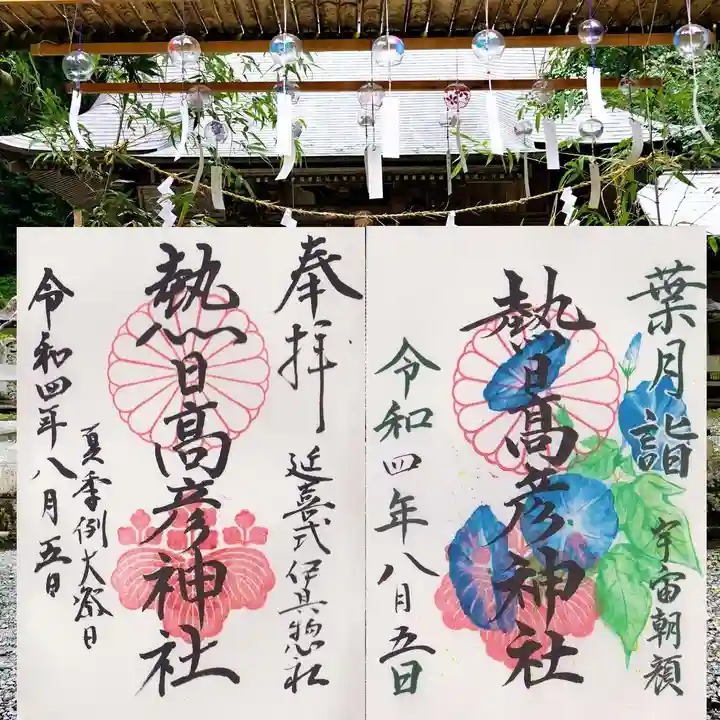 葉月詣
宇宙朝顔
熱日高彦神社
令和四年八月五日
奉拝
延喜式 伊具惣社
熱日高彦神社
夏季例大祭日
令和四年八月五日